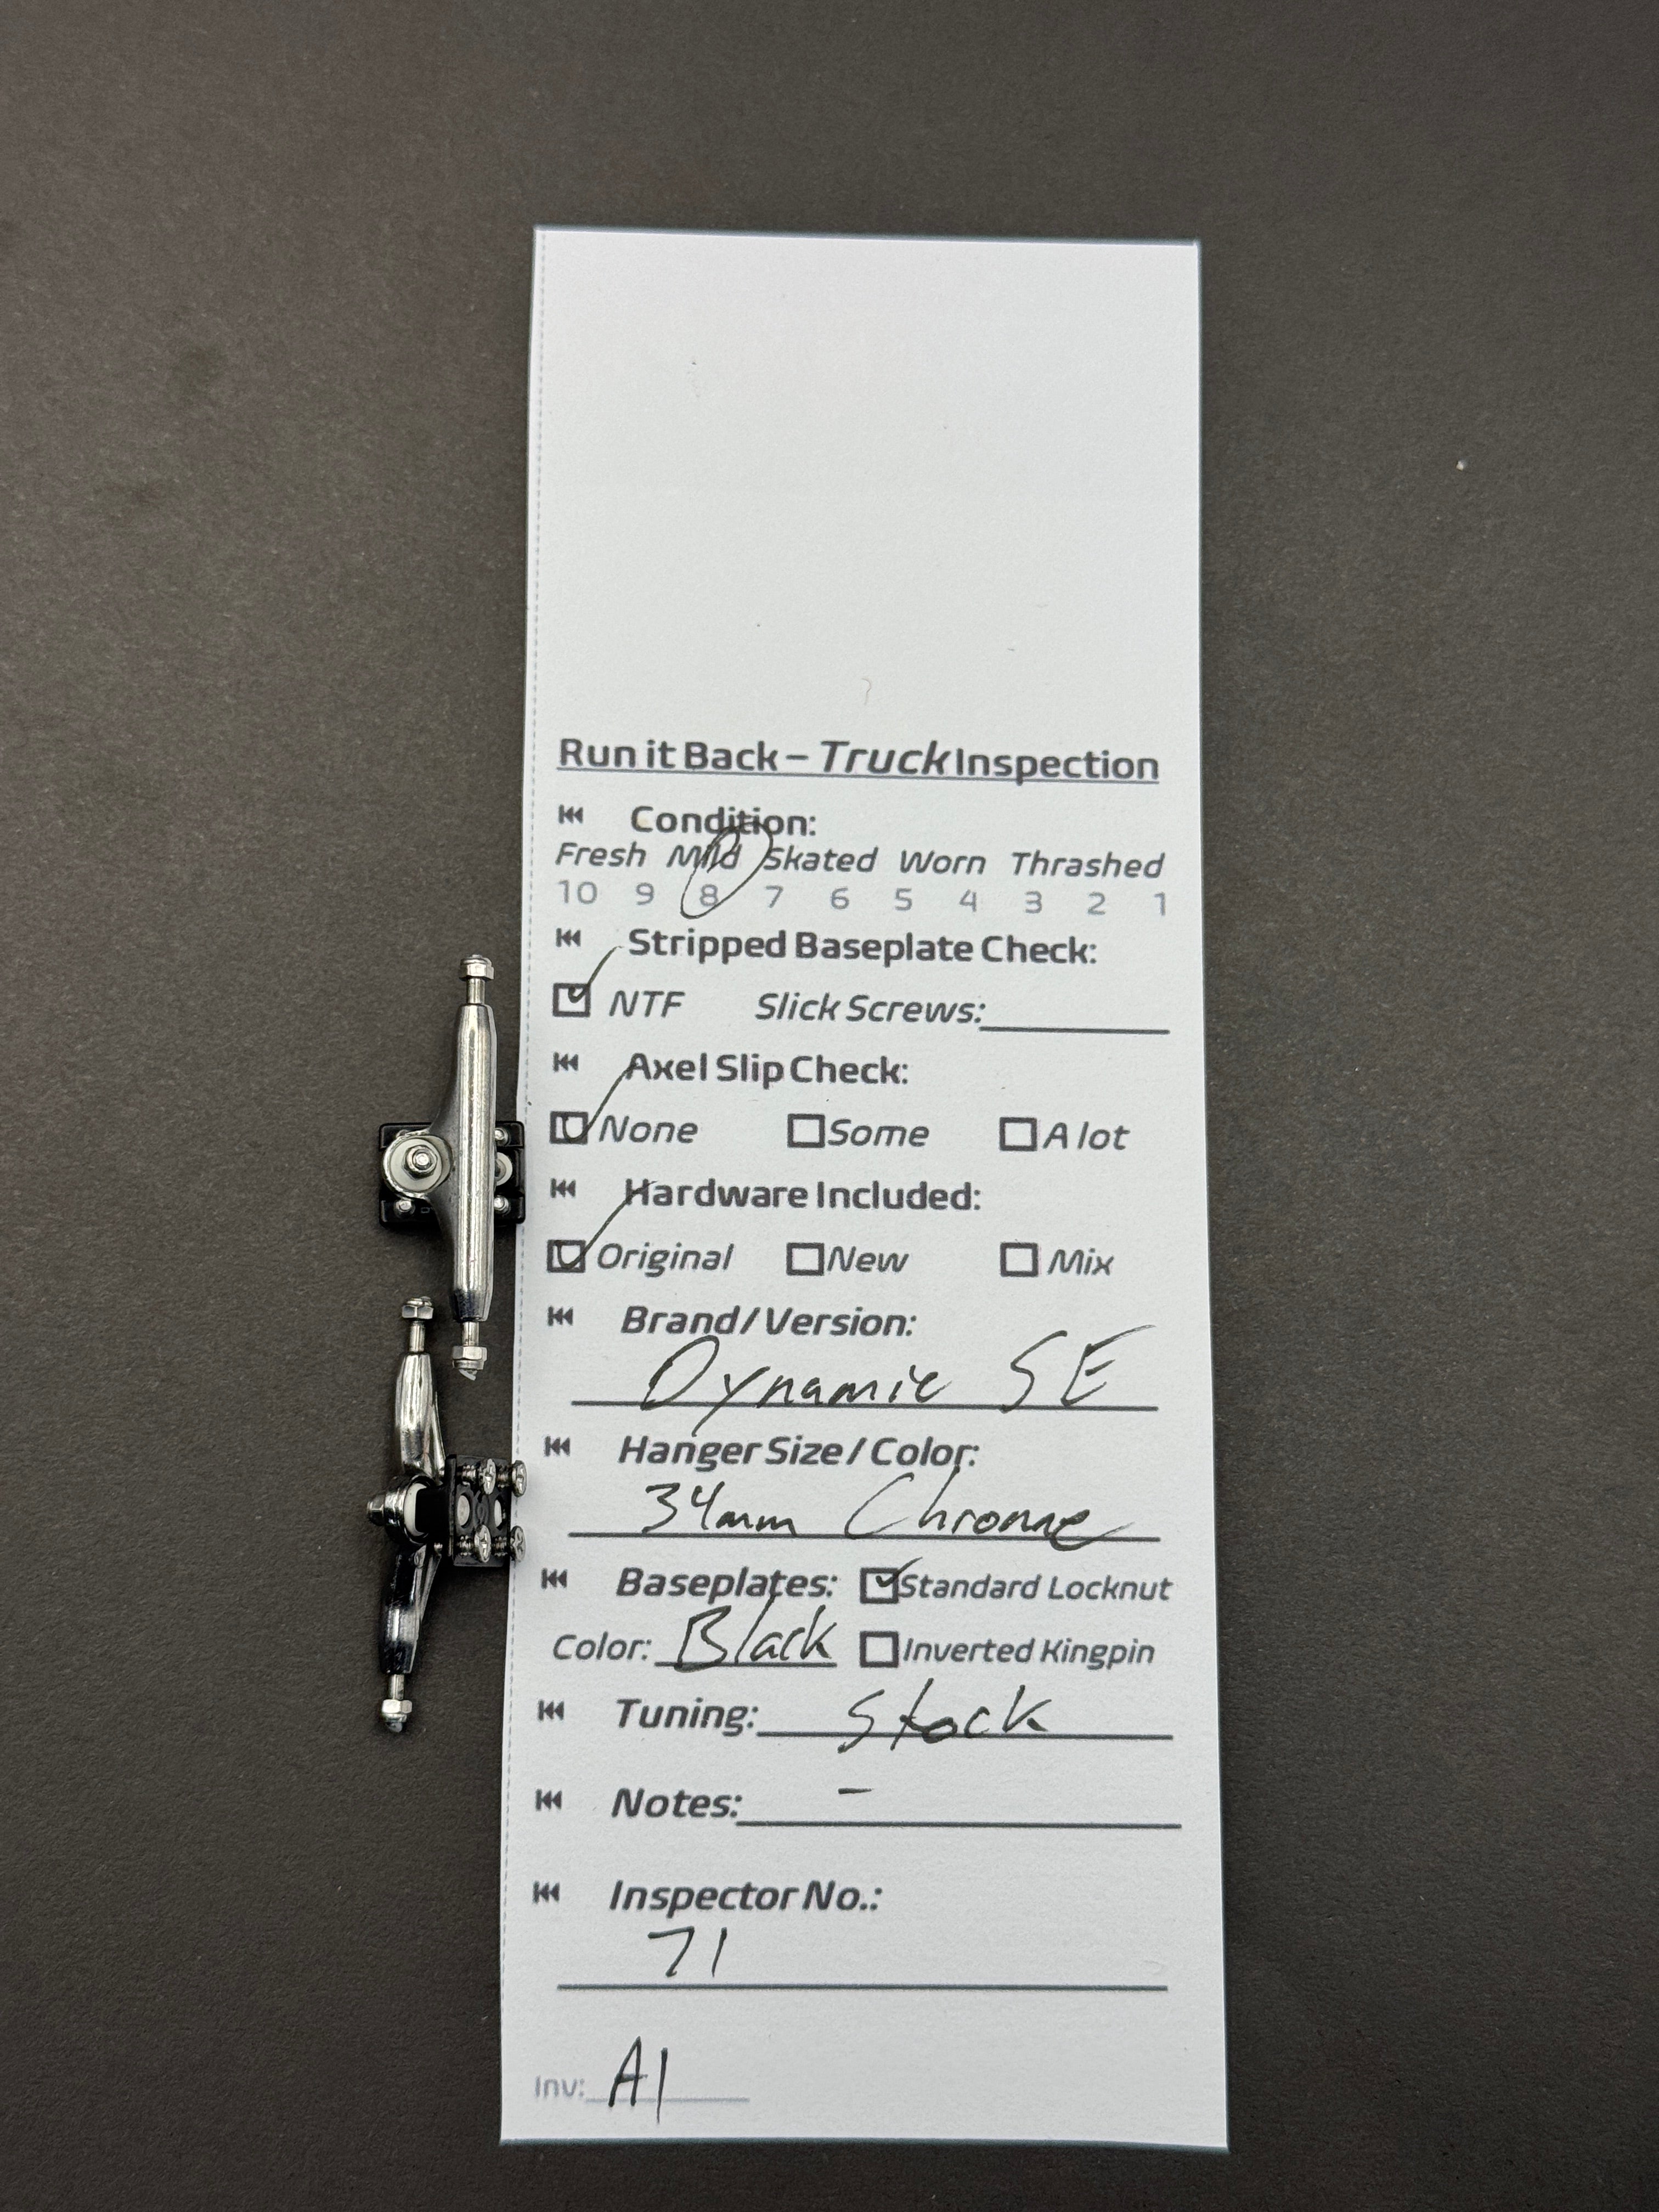 Run it Back – Truck Inspection
Condition:
Fresh Mild Skated Worn Thrashed
10 9 8 7 6 5 4 3 2 1
Stripped Baseplate Check:
NTF Slick Screws:
Axel Slip Check:
None Some A lot
Hardware Included:
Original New Mix
Brand/Version:
Dynamic SE
Hanger Size/Color:
34mm Chrome
Baseplates: Standard Locknut
Color: Black Inverted Kingpin
Tuning: Stock
Notes: -
Inspector No.:
71
Inv: A1